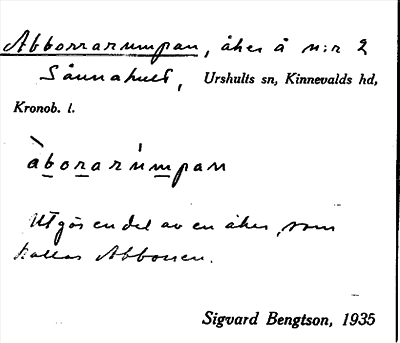 Abborrarumpan, åker å n:r 2
Sånnahult, Urshults sn, Kinnevalds hd,
Kronob. l.
àborarúmpan
Utgör en del av en åker, som
kallas Abborren.
Sigvard Bengtson, 1935